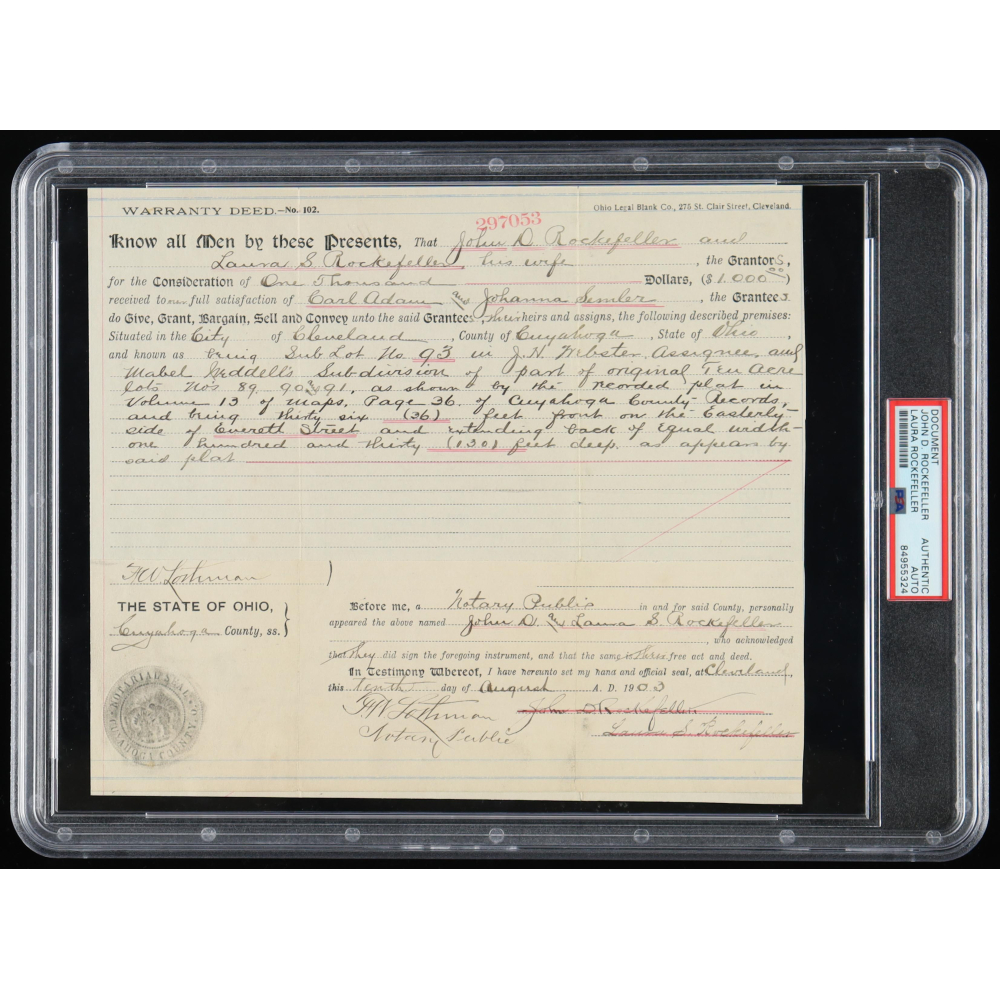 WARRANTY DEED.—No. 102.
Ohio Legal Blank Co., 275 St. Clair Street, Cleveland.
297053
Know all Men by these Presents, That John D. Rockefeller and
Laura S. Rockefeller, his wife, the Grantors,
for the Consideration of One Thousand Dollars, ($1.000 00)
received to full satisfaction of Carl Adam and Johanna Semler, the Grantees
do Give, Grant, Bargain, Sell and Convey unto the said Grantees, their heirs and assigns, the following described premises:
Situated in the City of Cleveland, County of Cuyahoga, State of Ohio,
and known as being Sub Lot No. 93 in J. H. Webster, Assignee, and
Mabel Subdivision of part of original Ten Acre
lots Nos 89, 90 and 91, as shown by the recorded plat in
Volume 13 of maps, Page 36. of Cuyahoga County Records,
and being thirty six (36) feet front on the Easterly
side of Everett Street and extending back of equal width
one hundred and thirty (130) feet deep, as appears by
said plat
THE STATE OF OHIO,
Cuyahoga County, ss.
Before me, a Notary Public in and for said County, personally
appeared the above named John D. and Laura S. Rockefeller
, who acknowledged
that they did sign the foregoing instrument, and that the same is their free act and deed.
In Testimony Whereof, I have hereunto set my hand and official seal, at Cleveland,
this tenth day of August A. D. 1903
John D Rockefeller
Notary Public
Laura S. Rockefeller
NOTARIAL SEAL
CUYAHOGA COUNTY
DOCUMENT
JOHN D. ROCKEFELLER AUTHENTIC
LAURA ROCKEFELLER AUTO
PSA 84955324